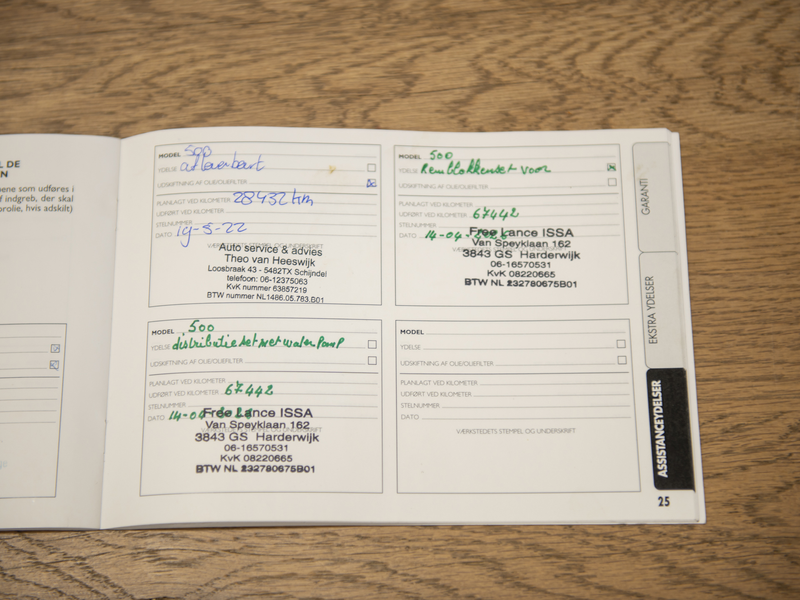 L DE
N
oene som udføres i
f indgreb, der skal
orolie, hvis adskilt)
MODEL 500
YDELSE
UDSKIFTNING AF OLIE/OLIEFILTER
PLANLAGT VED KILOMETER 28432 km
UDFØRT VED KILOMETER
STELNUMMER
DATO 19-5-22
VÆRKSTEDETS STEMPEL OG UNDERSKRIFT
Auto service & advies
Theo van Heeswijk
Loosbraak 43 - 5482TX Schijndel
telefoon: 06-12375063
KvK nummer 63857219
BTW nummer NL1486.05.783.B01
MODEL 500
YDELSE Remblokkenset voor
UDSKIFTNING AF OLIE/OLIEFILTER
PLANLAGT VED KILOMETER
UDFØRT VED KILOMETER 67442
STELNUMMER
DATO 14-04-
Free Lance ISSA
Van Speyklaan 162
3843 GS Harderwijk
06-16570531
KvK 08220665
BTW NL 232780675B01
MODEL 500
YDELSE distributie set met waterpomp
UDSKIFTNING AF OLIE/OLIEFILTER
PLANLAGT VED KILOMETER
UDFØRT VED KILOMETER 67442
STELNUMMER
DATO 14-04
Free Lance ISSA
Van Speyklaan 162
3843 GS Harderwijk
06-16570531
KvK 08220665
BTW NL 232780675B01
MODEL
YDELSE
UDSKIFTNING AF OLIE/OLIEFILTER
PLANLAGT VED KILOMETER
UDFØRT VED KILOMETER
STELNUMMER
DATO
VÆRKSTEDETS STEMPEL OG UNDERSKRIFT
GARANTI
EKSTRA YDELSER
ASSISTANCEYDELSER
25